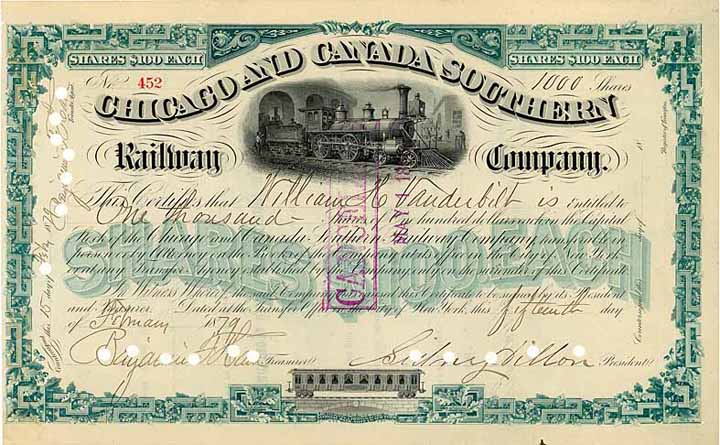 SHARES $100 EACH SHARES $100 EACH
No. 452 1000 Shares
CHICAGO AND CANADA SOUTHERN
Railway Company.
This Certifies that William H Vanderbilt is entitled to
One thousand Shares of One hundred dollars each in the Capital
Stock of the Chicago and Canada Southern Railway Company transferable in
person or by Attorney on the Books of the Company at its office in the City of New York
on the surrender of this Certificate
In Witness Whereof the said Company has caused this Certificate to be signed by its President
and Treasurer. Dated at the Transfer Office in the City of New York, this fifteenth day
of February 1879
Treasurer Sidney Dillon President
SHARES $100 EACH
CANCELLED
MAY
Countersigned this 15 day of Feby 1879
Transfer Agent
Countersigned this day of 18
Registrar of Transfers